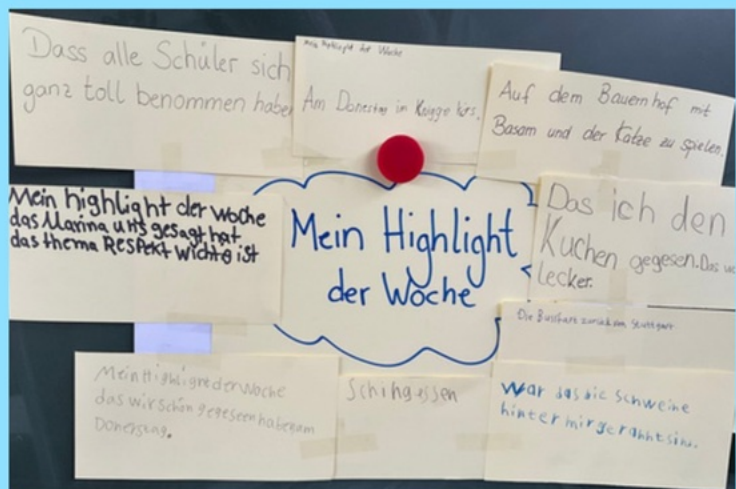 Dass alle Schüler sich
ganz toll benommen habe
Mein highlight der Woche
Am Donestag im Knigge kurs.
Auf dem Bauernhof mit
Basam und der Katze zu spielen.
Mein highlight der Woche
das Marina uns gesagt hat
das thema RESPEKT wichtig ist
Mein Highlight
der Woche
Das ich den
Kuchen gegesen. Das
Lecker.
Die Busfahrt zurück von Stuttgart
Mein Highligre der Woche
das wir schön gegeseen haben am
Donerstag.
Schingessen
War das die Schweine
hinter mir gerahnt sind.